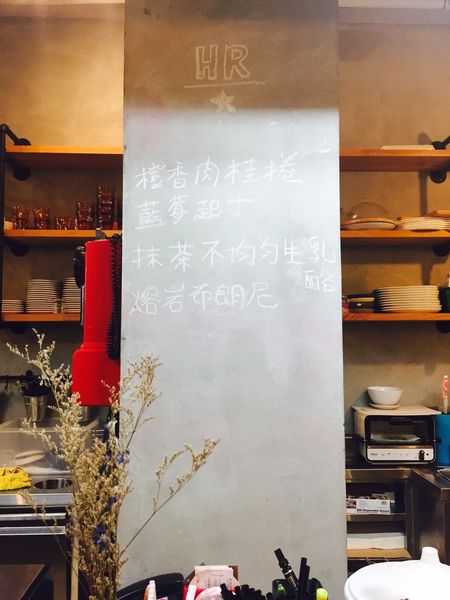 HR
橙香肉桂捲
藍莓起士
抹茶不均勻生乳酪
熔岩布朗尼